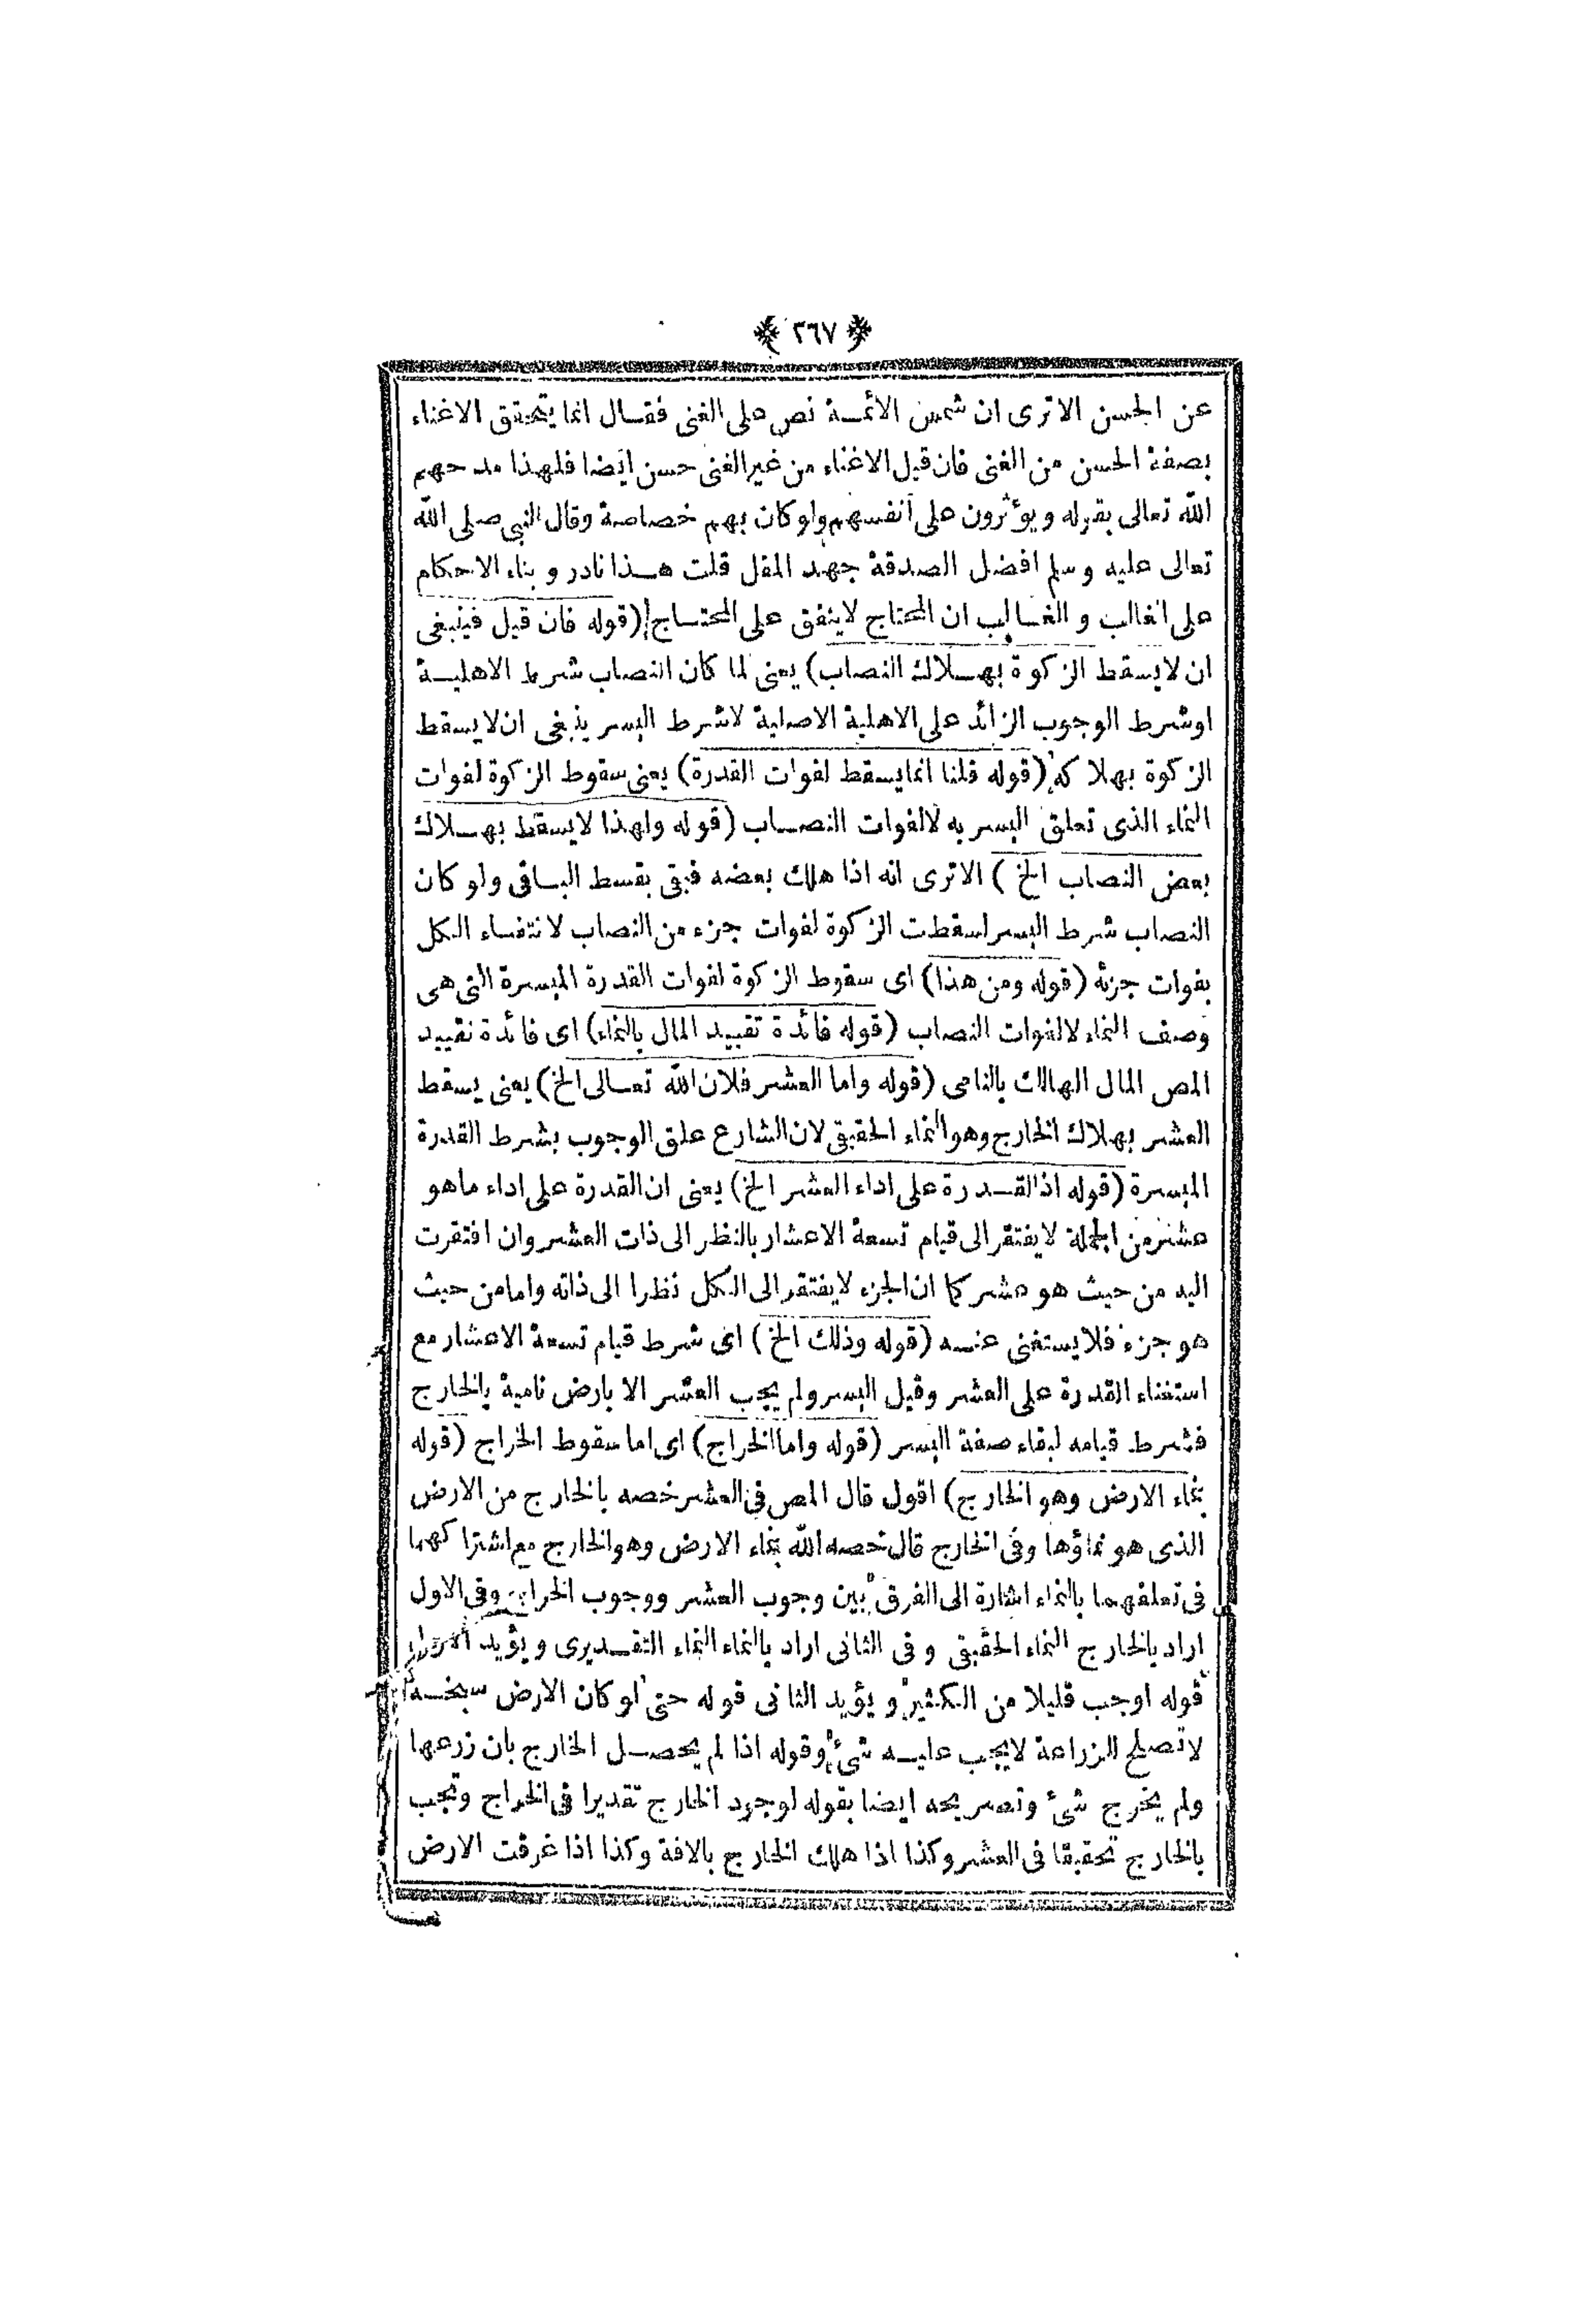 ٢٦٧
عن الحسن الاترى ان شمس الأئمة نص على الغنى فقال انما يتحقق الاغناء
بصفة الحسن من الغنى فان قيل الاغناء من غير الغنى حسن ايضا فلهذا مدحهم
الله تعالى بقوله ويؤثرون على انفسهم ولو كان بهم خصاصة وقال النبي صلى الله
تعالى عليه وسلم افضل الصدقة جهد المقل قلت هذا نادر وبناء الاحكام
على الغالب والغالب ان المحتاج لاينفق على المحتاج (قوله فان قيل فينبغى
ان لايسقط الزكوة بهلاك النصاب) يعنى لما كان النصاب شرط الاهلية
اوشرط الوجوب الزائد على الاهلية الاصلية لاشرط اليسر ينبغى ان لايسقط
الزكوة بهلاكه (قوله قلنا انما يسقط لفوات القدرة) يعنى سقوط الزكوة لفوات
النماء الذى تعلق اليسر به لالفوات النصاب (قوله ولهذا لايسقط بهلاك
بعض النصاب الخ) الاترى انه اذا هلك بعضه فبقى بقسط الباقى ولو كان
النصاب شرط اليسر لسقطت الزكوة لفوات جزء من النصاب لانتفاء الكل
بفوات جزئه (قوله ومن هذا) اى سقوط الزكوة لفوات القدرة الميسرة التى هى
وصف النماء لالفوات النصاب (قوله فائدة تقييد المال بالنماء) اى فائدة تقييد
المص المال الهالك بالنامى (قوله واما العشر فلان الله تعالى الخ) يعنى يسقط
العشر بهلاك الخارج وهو النماء الحقيقى لان الشارع علق الوجوب بشرط القدرة
الميسرة (قوله اذ القدرة على اداء العشر الخ) يعنى ان القدرة على اداء ماهو
عشر من الجملة لايفتقر الى قيام تسعة الاعشار بالنظر الى ذات العشر وان افتقرت
اليه من حيث هو عشر كما ان الجزء لايفتقر الى الكل نظرا الى ذاته واما من حيث
هو جزء فلا يستغنى عنه (قوله وذلك الخ) اى شرط قيام تسعة الاعشار مع
استغناء القدرة على العشر وقيل اليسر ولم يجب العشر الا بارض نامية بالخارج
فشرط قيامه لبقاء صفة اليسر (قوله واما الخراج) اى اما سقوط الخراج (قوله
بنماء الارض وهو الخارج) اقول قال المص فى العشر خصه بالخارج من الارض
الذى هو نماؤها وفى الخارج قال خصه الله بنماء الارض وهو الخارج مع اشتراكهما
فى تعلقهما بالنماء اشارة الى الفرق بين وجوب العشر ووجوب الخراج وفى الاول
اراد بالخارج النماء الحقيقى وفى الثانى اراد بالنماء النماء التقديرى ويؤيد الاول
قوله اوجب قليلا من الكثير ويؤيد الثانى قوله حتى لو كان الارض سبخة
لاتصلح للزراعة لايجب عليه شئ وقوله اذا لم يحصل الخارج بان زرعها
ولم يخرج شئ وتصريحه ايضا بقوله لوجود الخارج تقديرا فى الخراج وتجب
بالخارج تحقيقا فى العشر وكذا اذا هلك الخارج بالافة وكذا اذا غرقت الارض